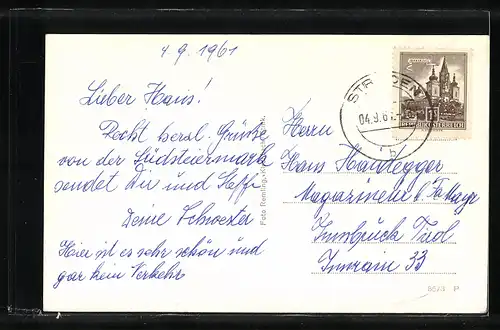 4.9.1961
Lieber Hans!
Recht herzl. Grüsse
von der Südsteiermark
sendet Dir und Steffi
Deine Schwester
Hier ist es sehr schön und
gar kein Verkehr
Foto Rembling,
STRADEN
04.9.61
b
REPUBLIK ÖSTERREICH
Herrn
Hans Haidegger
Magazineur b. Fa Mayr
Innsbruck Tirol
Innrain 33